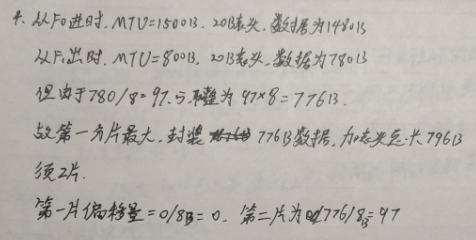 4. 从F0进时. MTU=1500B. 20B表头. 数据为1480B
从F1出时. MTU=800B. 20B表头. 数据为780B
但由于780/8=97.5取整为97×8=776B.
故第一分片最大, 封装776B数据, 加表头总长796B
须2片.
第一片偏移量=0/8B=0. 第二片为776/8B=97